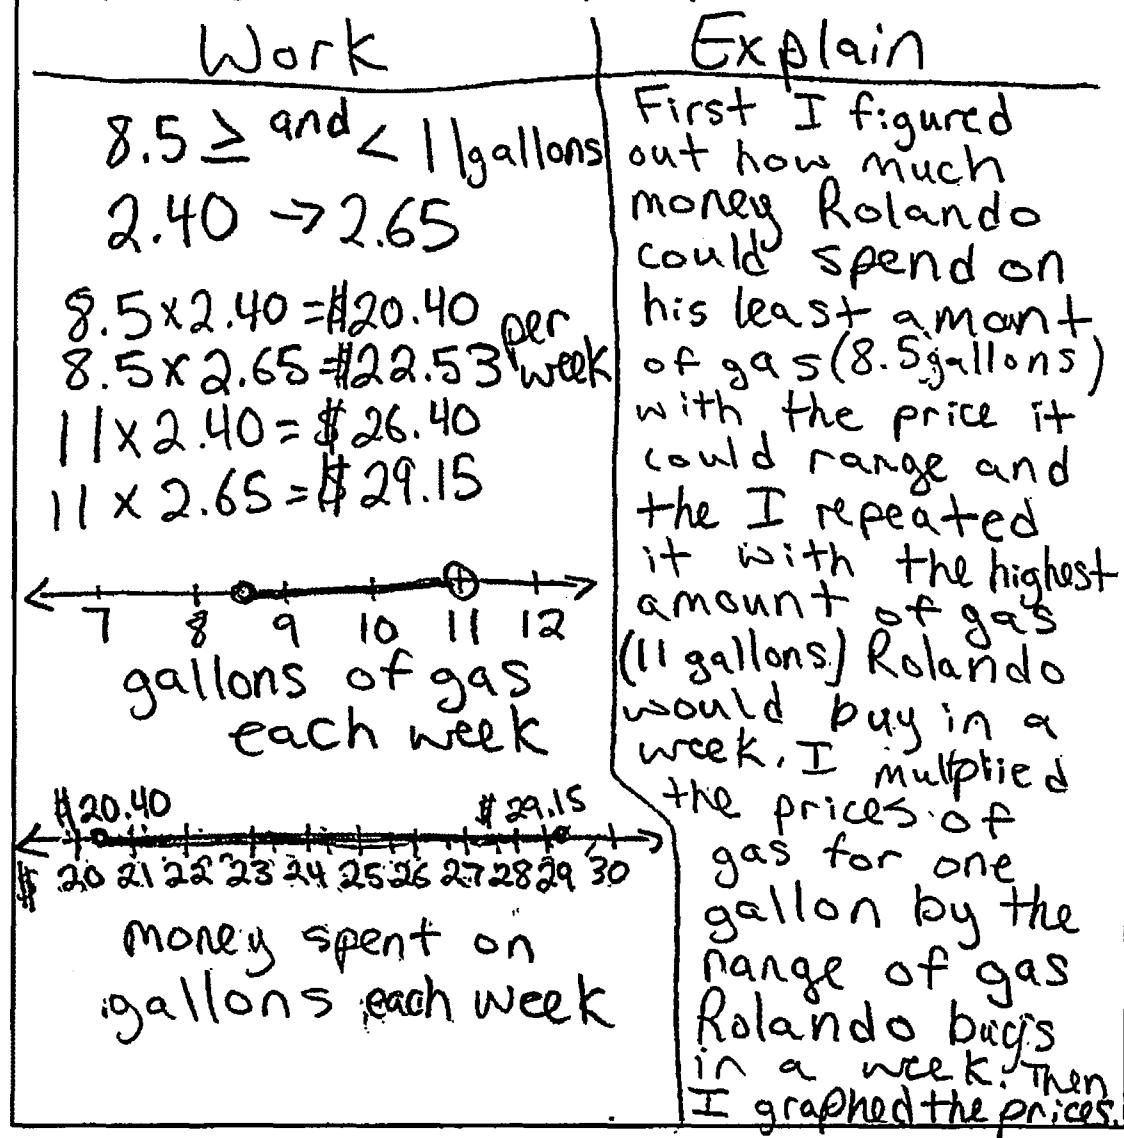 Work
8.5 ≥ and < 11 gallons
2.40 → 2.65
8.5 x 2.40 = $20.40
8.5 x 2.65 = $22.53 per week
11 x 2.40 = $26.40
11 x 2.65 = $29.15
7 8 9 10 11 12
gallons of gas
each week
$20.40 $29.15
$ 20 21 22 23 24 25 26 27 28 29 30
money spent on
gallons each week
Explain
First I figured
out how much
money Rolando
could spend on
his least amount
of gas (8.5 gallons)
with the price it
could range and
the I repeated
it with the highest
amount of gas
(11 gallons) Rolando
would buy in a
week. I multplied
the prices of
gas for one
gallon by the
range of gas
Rolando buys
in a week. Then
I graphed the prices.